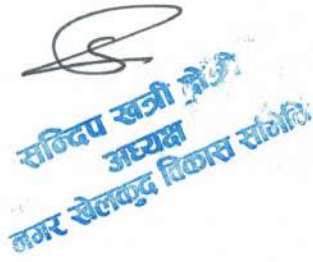 सन्दिप खत्री
अध्यक्ष
नगर खेलकुद विकास समिति